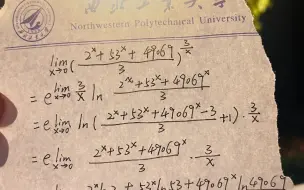 Northwestern Polytechnical University
lim x→0 ( (2^x+53^x+49069^x)/3 )^(3/x)
= e lim x→0 3/x ln (2^x+53^x+49069^x)/3
= e lim x→0 ln ( (2^x+53^x+49069^x-3)/3 +1) · 3/x
= e lim x→0 (2^x+53^x+49069^x)/3 · 3/x